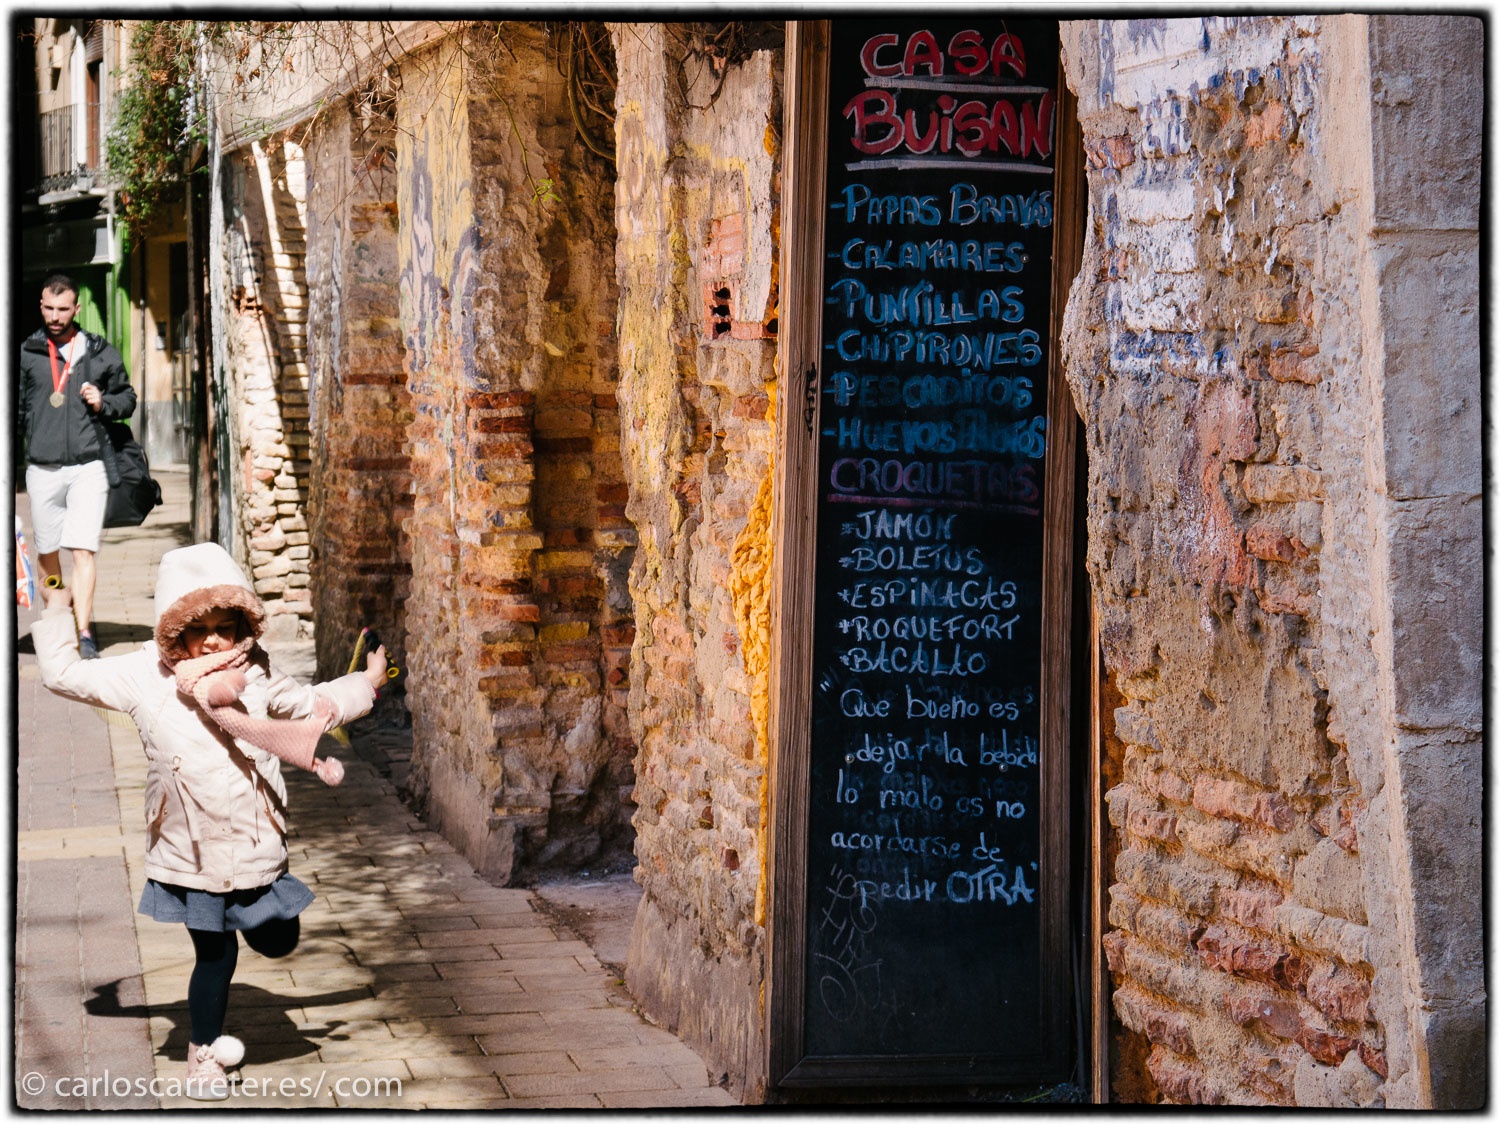 CASA
BUISAN
-PAPAS BRAVAS
-CALAMARES
-PUNTILLAS
-CHIPIRONES
-PESCADITOS
-HUEVOS ROTOS
CROQUETAS
*JAMÓN
*BOLETUS
*ESPINACAS
*ROQUEFORT
*BACALAO
"Que bueno es
dejar la bebida
lo malo es no
acordarse de
pedir OTRA"
© carloscarreter.es/.com